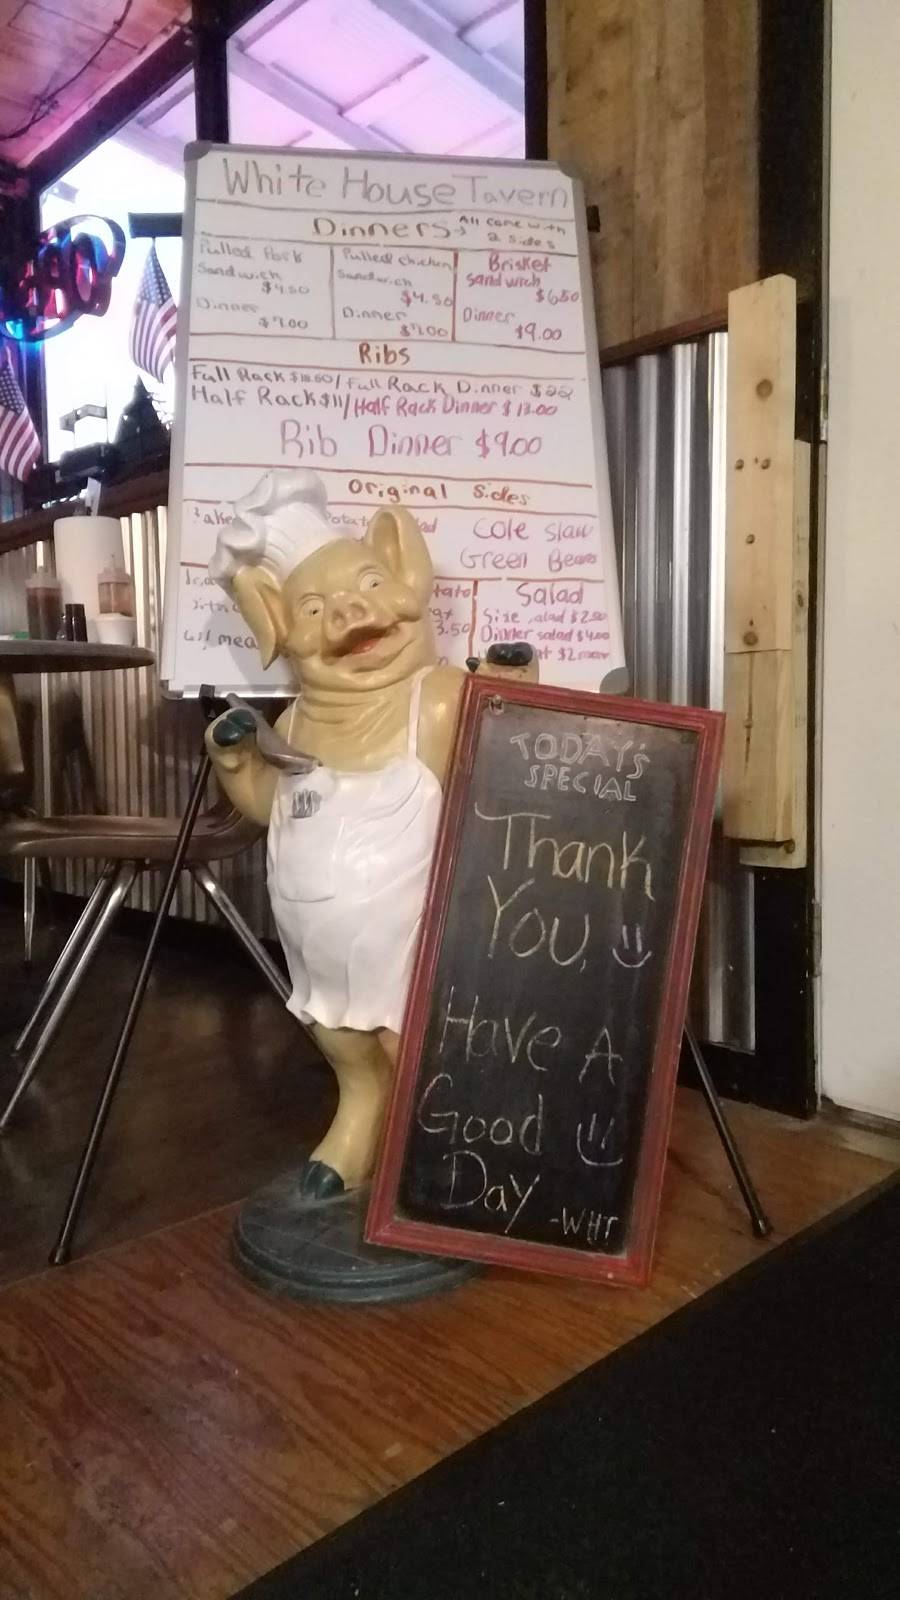 White House Tavern
Dinners → All come with
2 sides
Pulled Pork
Sandwich
$4.50
Dinner
$7.00
Pulled chicken
Sandwich
$4.50
Dinner
$7.00
Brisket
sandwich
$6.50
Dinner
$9.00
Ribs
Full Rack / Full Rack Dinner $22
Half Rack $11 / Half Rack Dinner $13.00
Rib Dinner $9.00
Original Sides
Cole Slaw
Green Beans
3.50
Salad
Side salad $2.50
Dinner salad $4.00
$2 more
TODAY'S
SPECIAL
Thank
You,
Have A
Good
Day
-WHT